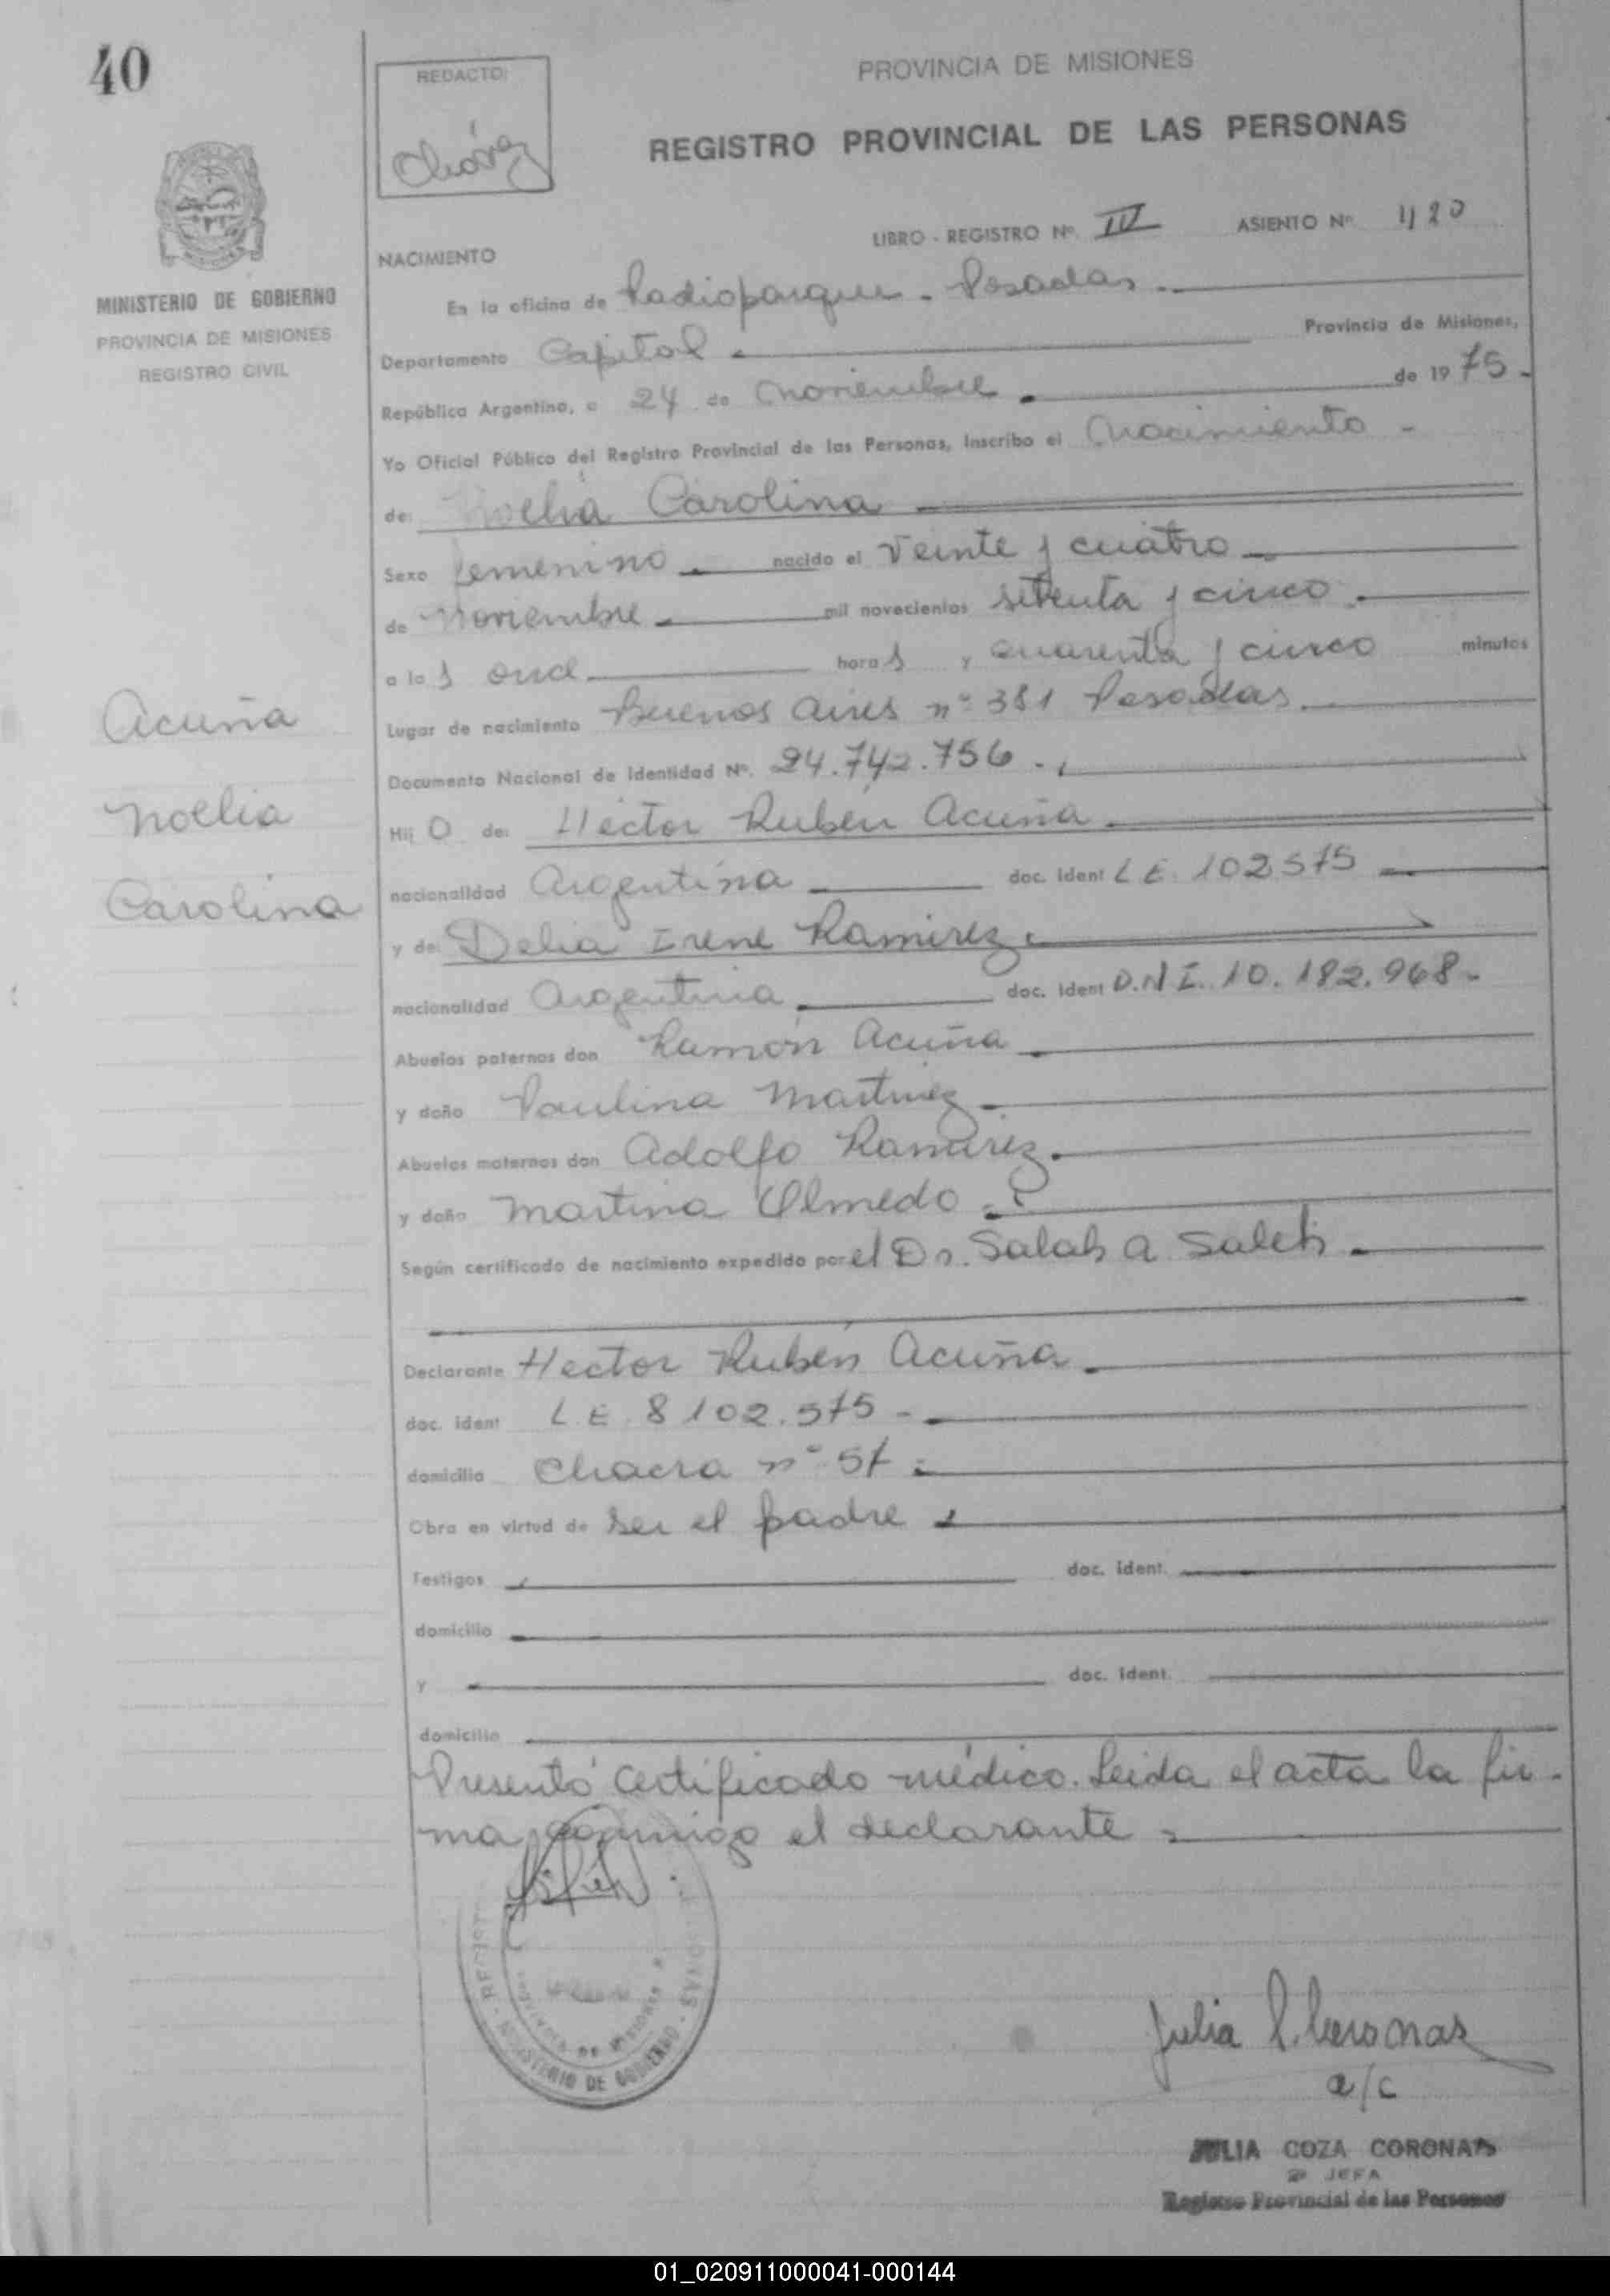 40
REDACTO:
Chávez
PROVINCIA DE MISIONES
REGISTRO PROVINCIAL DE LAS PERSONAS
LIBRO - REGISTRO Nº III ASIENTO Nº 1120
NACIMIENTO
MINISTERIO DE GOBIERNO
PROVINCIA DE MISIONES
REGISTRO CIVIL
En la oficina de Radioparque - Posadas.
Departamento Capital. Provincia de Misiones,
República Argentina, a 24 de Noviembre. de 1975.
Yo Oficial Público del Registro Provincial de las Personas, Inscribo el Nacimiento -
de: Noelia Carolina
Sexo femenino. nacido el Veinte y cuatro
de Noviembre. mil novecientos setenta y cinco.
a las once horas y cuarenta y cinco minutos
Lugar de nacimiento Buenos Aires nº 381 Posadas.
Documento Nacional de Identidad Nº. 24.742.756.
Acuña
Noelia
Carolina
Hij O de: Héctor Rubén Acuña.
nacionalidad Argentina doc. ident L E. 102.575
y de: Delia Irene Ramirez.
nacionalidad Argentina. doc. ident D.N I. 10.182.968-
Abuelos paternos don Ramón Acuña
y doña Paulina Martinez
Abuelos maternos don Adolfo Ramirez.
y doña Martina Olmedo
Según certificado de nacimiento expedido por el Dr. Salah A Saleh.
Declarante Hector Rubén Acuña
doc. ident L.E. 8102.575 -
domicilio Chacra nº 57
Obra en virtud de ser el padre
Testigos doc. ident.
domicilio
y doc. ident.
domicilio
Presentó certificado médico. Leida el acta la fir-
ma conmigo el declarante
MINISTERIO DE GOBIERNO
Julia C. Coronas
a/c
JULIA COZA CORONAS
2º JEFA
Registro Provincial de las Personas
01_020911000041-000144